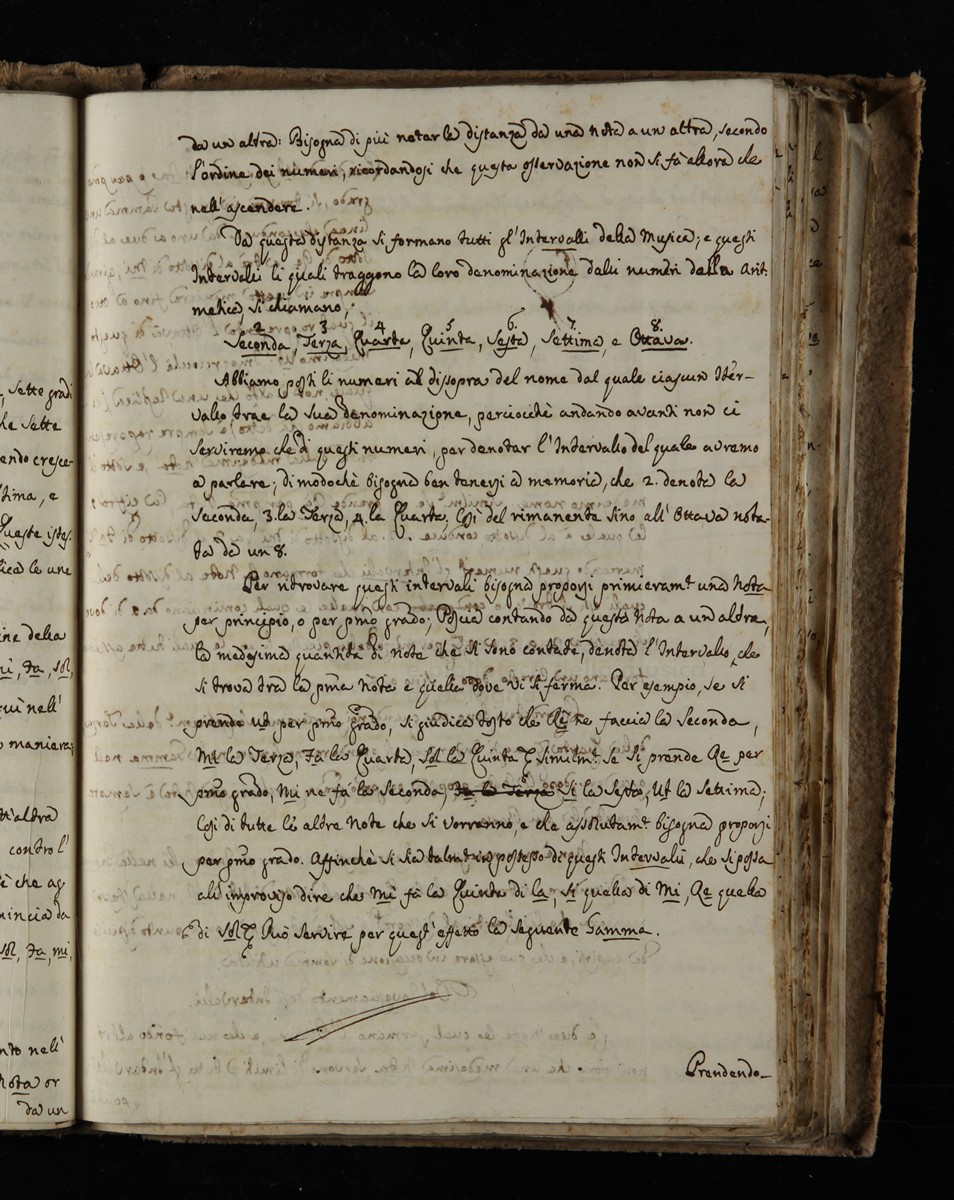 sette gradi
he sette
endo cresce-
ttima, e
Queste istes-
ica le une
ine della
mi, fa, sol,
qui nell'
o maniera;
tt'altra
contro l'
ì che ag
mincia da
sol, fa, mi,
nto nell'
Nota or
da un
da un altra: Bisogna di più notar la distanza da una nota a un altra, secondo
l'ordine dei numeri, ricordandosi che questa osservazione non si fà allora che
nell'ascendere.
Da questa distanza si formano tutti gl'Intervalli della Musica; e questi
Intervalli li quali traggono la loro denominazione dalli numeri della Arit:
metica, si chiamano,
2. 3 4 5 6. 7. 8.
Seconda, Terza, Quarta, Quinta, Sesta, Settima, e Ottava.
Abbiamo posti li numeri al dissopra del nome dal quale ciascun Inter-
vallo trae la sua denominazione, perciocchè andando avanti non ci
serviremo che di questi numeri, per denotar l'Intervallo del quale avremo
a parlare; di modochè bisogna ben tenersi a memoria, che 2. denota la
Seconda, 3. la Terza, 4. la Quarta; Così del rimanente sino all'Ottava nota-
ta da un 8.
Per ritrovare questi intervalli bisogna proporsi primieramte una Nota
per principio, o per pmo grado; Poscia contando da questa Nota a un altra,
la medesima quantità di note che si sono contate, denota l'Intervallo che
si trova tra la pma Nota e quella dove vi si ferma. Per esempio, se si
prende Ut per pmo grado, si giudica tosto che Re ne faccia la Seconda,
Mi la Terza, Fa la Quarta, Sol la Quinta & similmte se si prende Re per
pmo grado, Mi ne fa la Seconda, Fa la Terza Si la Sesta, Ut la Settima;
Così di tutte le altre Note che si vorranno, e che assolutamte bisogna proporsi
per pmo grado. Affinchè si sia talmte in possesso di questi Intervalli, che si possa
all'improviso dire che Mi fà la Quinta di la, Si quella di Mi, Re quella
di Sol & Può servire per quest'effetto la seguente Gamma.
Prendendo-